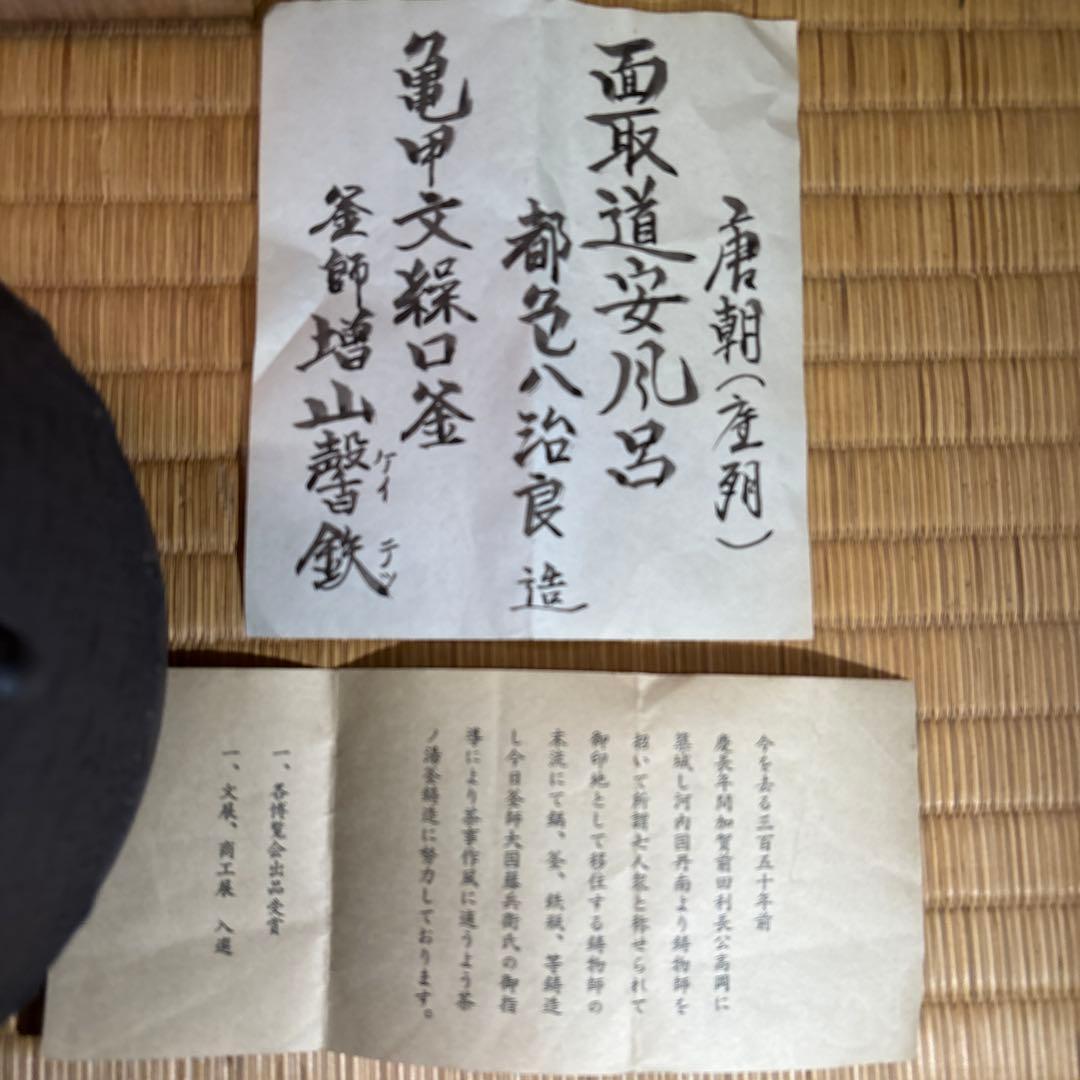 唐朝(座列)
面取道安風呂
都色八治良 造
亀甲文繰口釜
釜師 増山 馨鉄
ケイ テツ
今を去る三百五十年前
慶長年間加賀前田利長公高岡に
築城し河内国丹南より鋳物師を
招いて所謂七人衆と称せられて
御印地として移住する鋳物師の
末流にて鍋、釜、鉄瓶、等鋳造
し今日釜師大国藤兵衛氏の御指
導により茶事作風に適うよう茶
ノ湯釜鋳造に努力しております。
一、各博覧会出品受賞
一、文展、商工展 入選